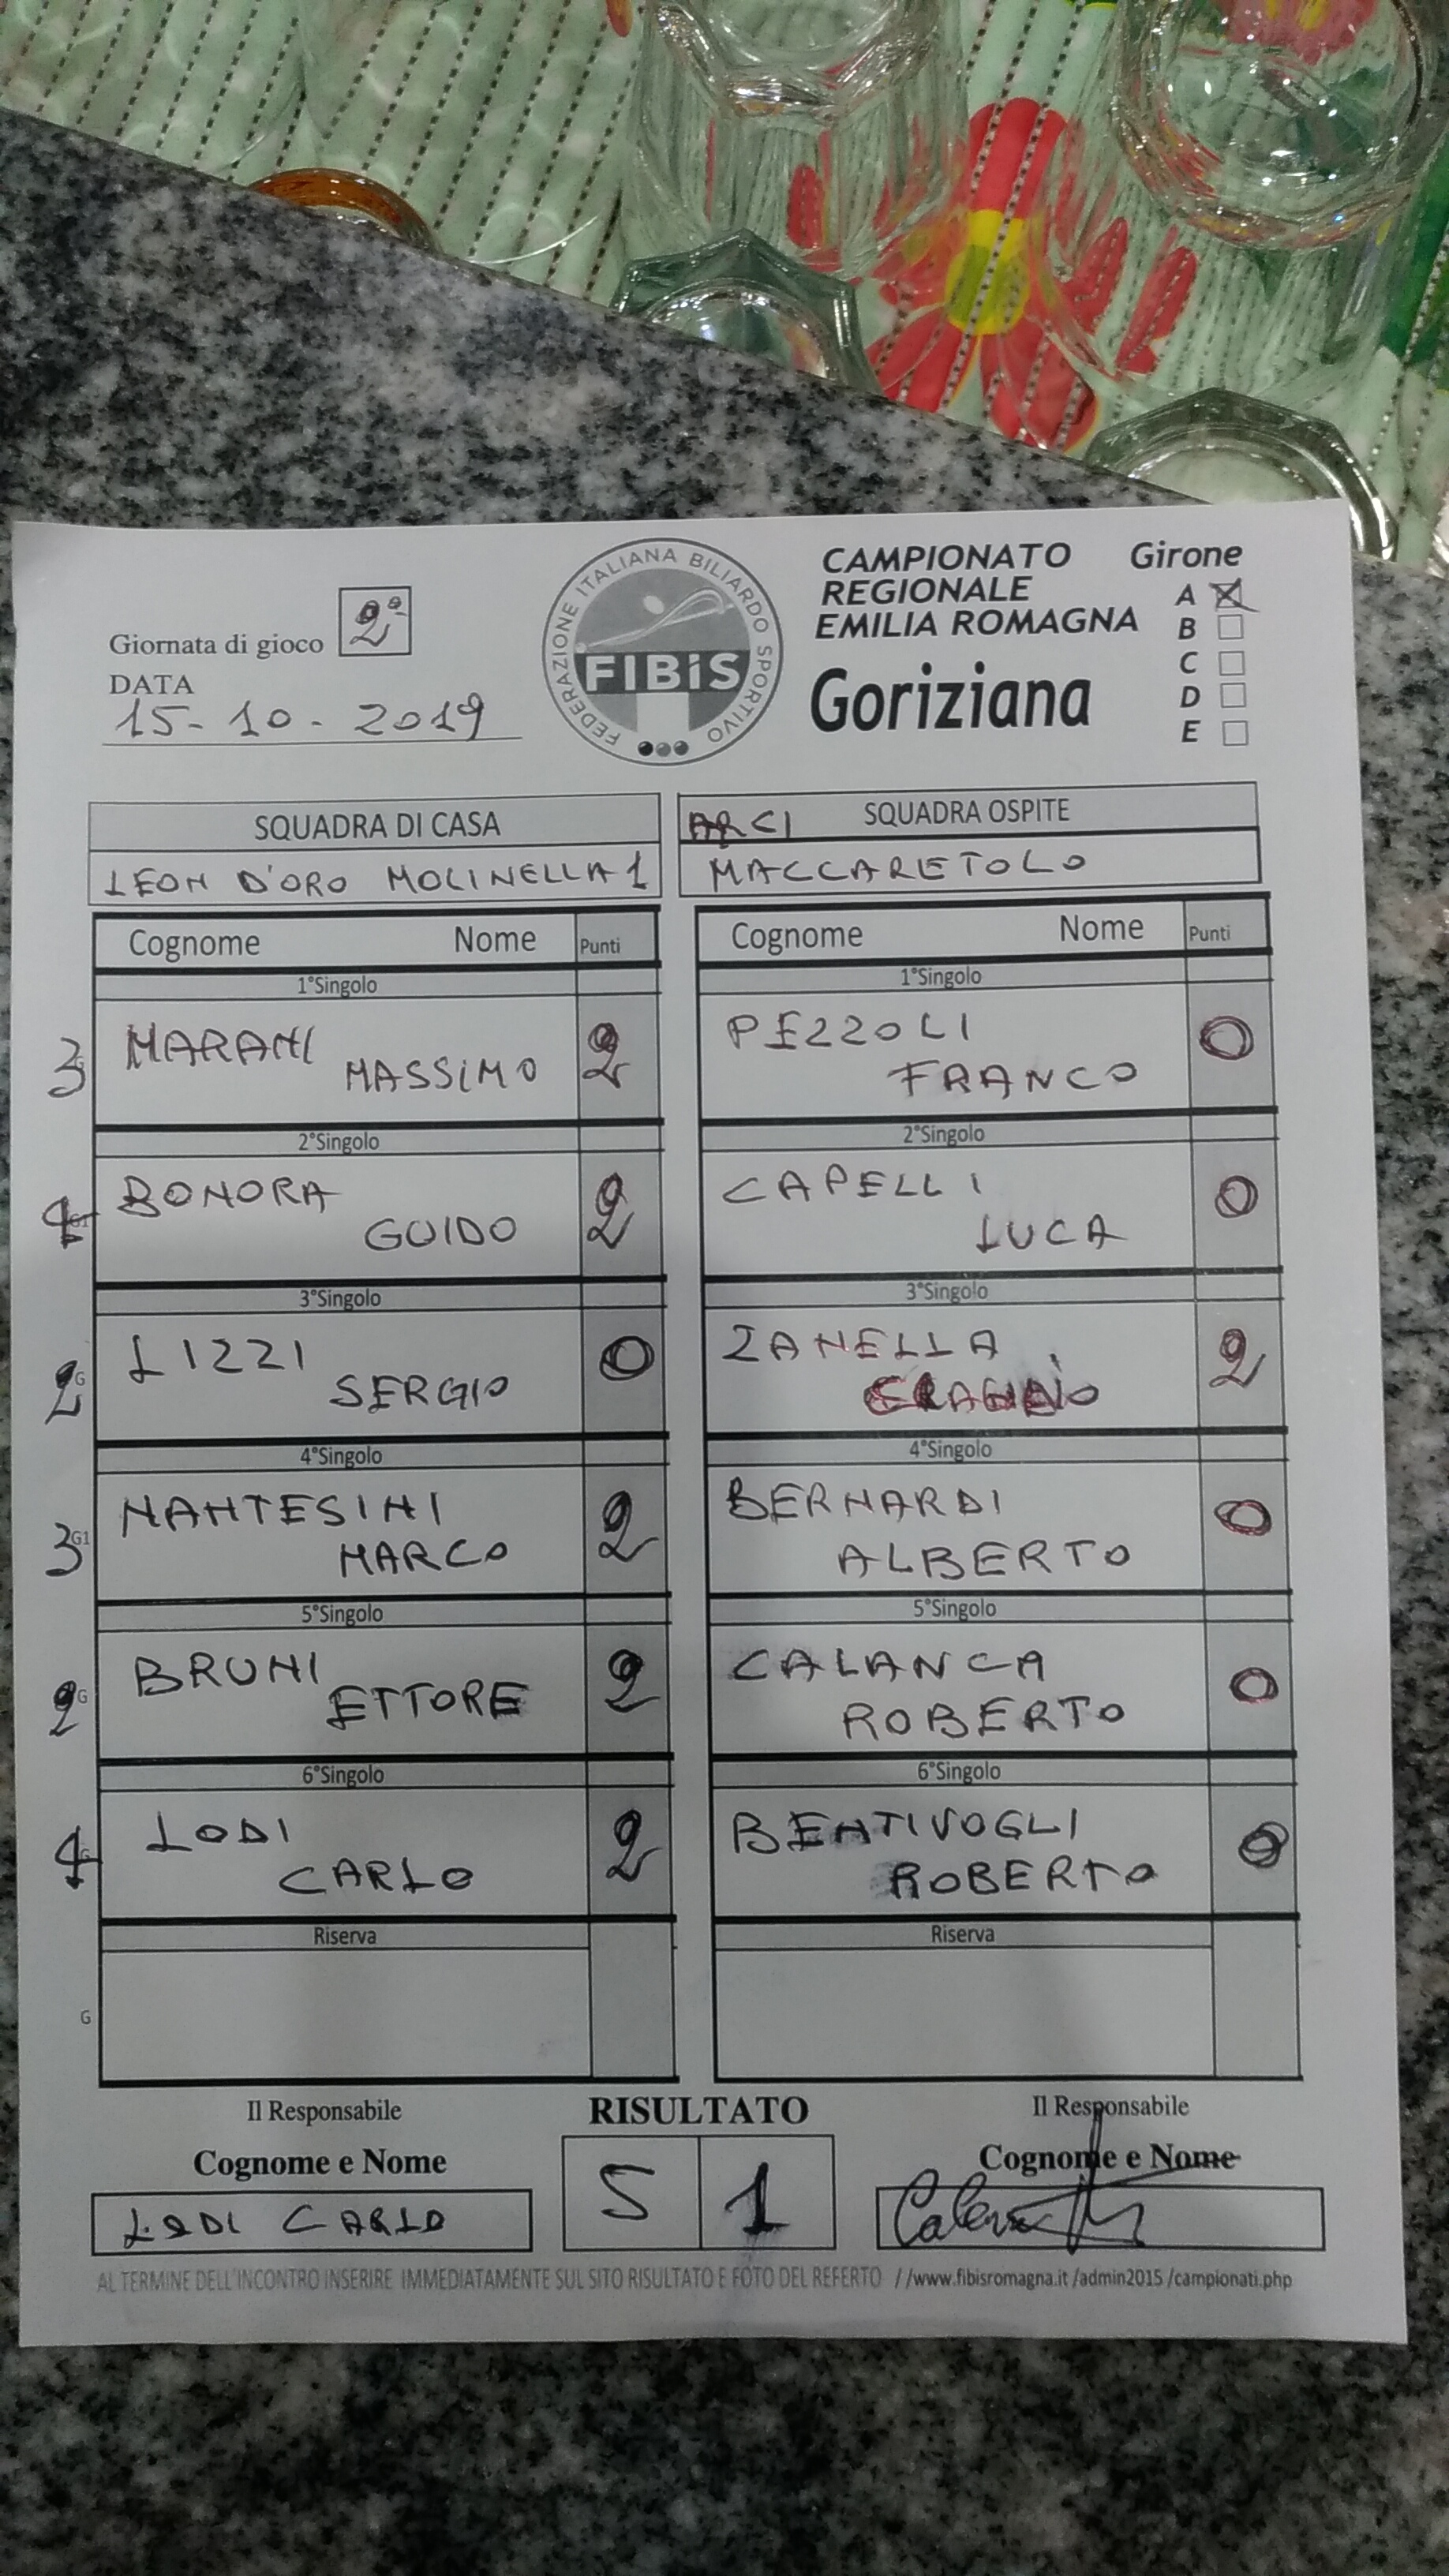 FEDERAZIONE ITALIANA BILIARDO SPORTIVO
FIBiS
CAMPIONATO
REGIONALE
EMILIA ROMAGNA
Goriziana
Girone
A X
B
C
D
E
Giornata di gioco 2ª
DATA
15-10-2019
SQUADRA DI CASA
LEON D'ORO MOLINELLA 1
ARCI SQUADRA OSPITE
MACCARETOLO
Cognome Nome Punti
Cognome Nome Punti
1°Singolo
3 MARANI MASSIMO 2
1°Singolo
PEZZOLI FRANCO 0
2°Singolo
BONORA GUIDO 2
2°Singolo
CAPELLI LUCA 0
3°Singolo
2 G LIZZI SERGIO 0
3°Singolo
ZANELLA 2
4°Singolo
3 G1 NANTESINI MARCO 2
4°Singolo
BERNARDI ALBERTO 0
5°Singolo
2 G BRUNI ETTORE 2
5°Singolo
CALANCA ROBERTO 0
6°Singolo
LODI CARLO 2
6°Singolo
BENTIVOGLI ROBERTO 0
Riserva
G
Riserva
Il Responsabile
Cognome e Nome
LODI CARLO
RISULTATO
5 1
Il Responsabile
Cognome e Nome
AL TERMINE DELL'INCONTRO INSERIRE IMMEDIATAMENTE SUL SITO RISULTATO E FOTO DEL REFERTO //www.fibisromagna.it /admin2015 /campionati.php